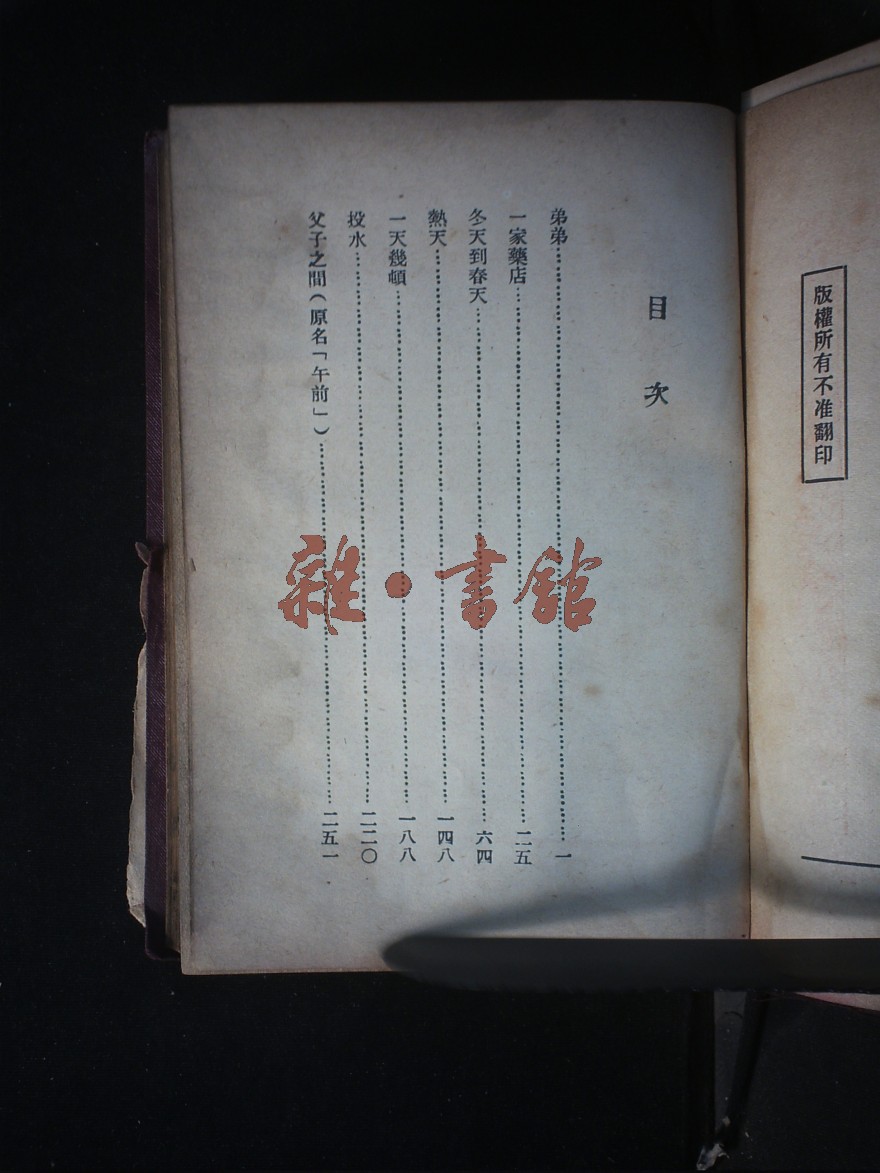 版權所有不准翻印
目次
弟弟……一
一家藥店……二五
冬天到春天……六四
熱天……一四八
一天幾頓……一八八
投水……二二〇
父子之間(原名「午前」)……二五一
雜・書館